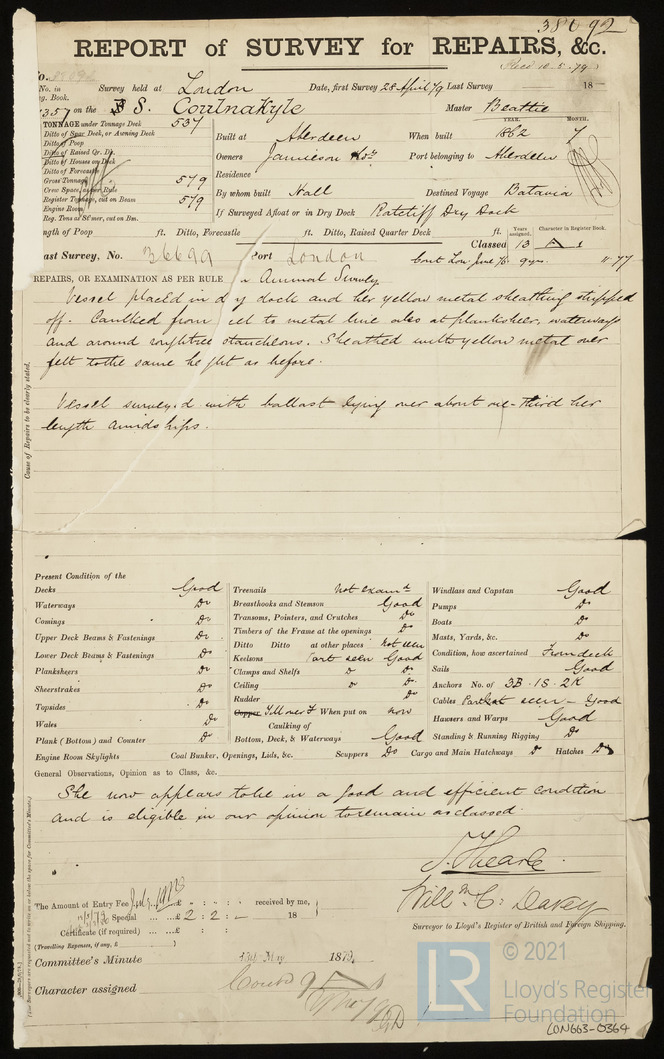 38692
REPORT of SURVEY for REPAIRS, &c.
(Recd 10.5.79.)
No. in Survey held at London Date, first Survey 28 April 79 Last Survey 18
Reg. Book.
357 on the S. Coulnakyle Master Beattie
TONNAGE under Tonnage Deck 537
YEAR. MONTH.
Ditto of Spar Deck, or Awning Deck
Ditto of Poop
Built at Aberdeen When built 1862 7
Ditto of Raised Qr. Dk.
Ditto of House on Deck
Owners Jamieson Port belonging to Aberdeen
Ditto of Forecastle
Residence
Gross Tonnage 579
Crew Space, as per Rule
By whom built Hall Destined Voyage Batavia
Register Tonnage, cut on Beam 579
Engine Room
Reg. Tons as St'mer, cut on Bm.
If Surveyed Afloat or in Dry Dock Ratcliff Dry Dock
ngth of Poop ft. Ditto, Forecastle ft. Ditto, Raised Quarter Deck ft.
Years assigned. Character in Register Book.
Classed 13 A 1
ast Survey, No. 36699 Port London
Cont Lon. June 76. 9 yrs. 11.77
REPAIRS, OR EXAMINATION AS PER RULE Annual Survey
Vessel placed in dry dock and her yellow metal sheathing stripped
off. Caulked from to metal line also at planksheer, waterways
and around roughtree stancheons. Sheathed with yellow metal over
felt to the same height as before.
Vessel surveyed with ballast lying over about one-third her
length amidships.
Cause of Repairs to be clearly stated.
Present Condition of the
Decks Good
Waterways Do
Comings Do
Upper Deck Beams & Fastenings Do
Lower Deck Beams & Fastenings Do
Planksheers Do
Sheerstrakes Do
Topsides Do
Wales Do
Plank (Bottom) and Counter Do
Treenails Not examd
Breasthooks and Stemson Good
Transoms, Pointers, and Crutches Do
Timbers of the Frame at the openings Do
Ditto Ditto at other places Not seen
Keelsons Part seen Good
Clamps and Shelfs Do Do
Ceiling Do Do
Rudder Do
Copper Yellow Mt When put on now
Caulking of
Bottom, Deck, & Waterways Good
Windlass and Capstan Good
Pumps Do
Boats Do
Masts, Yards, &c. Do
Condition, how ascertained From deck
Sails Good
Anchors No. of 3B. 1S. 2K
Cables Part seen - Good
Hawsers and Warps Good
Standing & Running Rigging Do
Engine Room Skylights Coal Bunker, Openings, Lids, &c. Scuppers Do Cargo and Main Hatchways Do Hatches Do
General Observations, Opinion as to Class, &c.
She now appears to be in a good and efficient condition
and is eligible in our opinion to remain as classed.
J. Hearle.
Willm C: Davey
Surveyor to Lloyd's Register of British and Foreign Shipping.
The Amount of Entry Fee £ : : received by me,
Special £ 2 : 2 : - 18
Certificate (if required) £ :
(Travelling Expenses, if any, £ )
Committee's Minute 13th May 1879.
Character assigned
LR
© 2021
Lloyd's Register
Foundation
LON663-0364